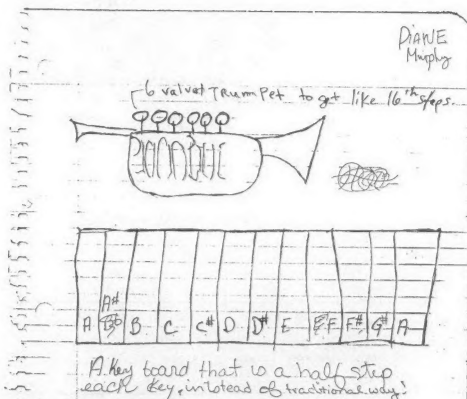 DiANE
Murphy
6 valvet TRumpet to get like 16th steps
A A# Bb B C C# D D# E F F# G# A
A key board that is a half step
each key, instead of traditional way!